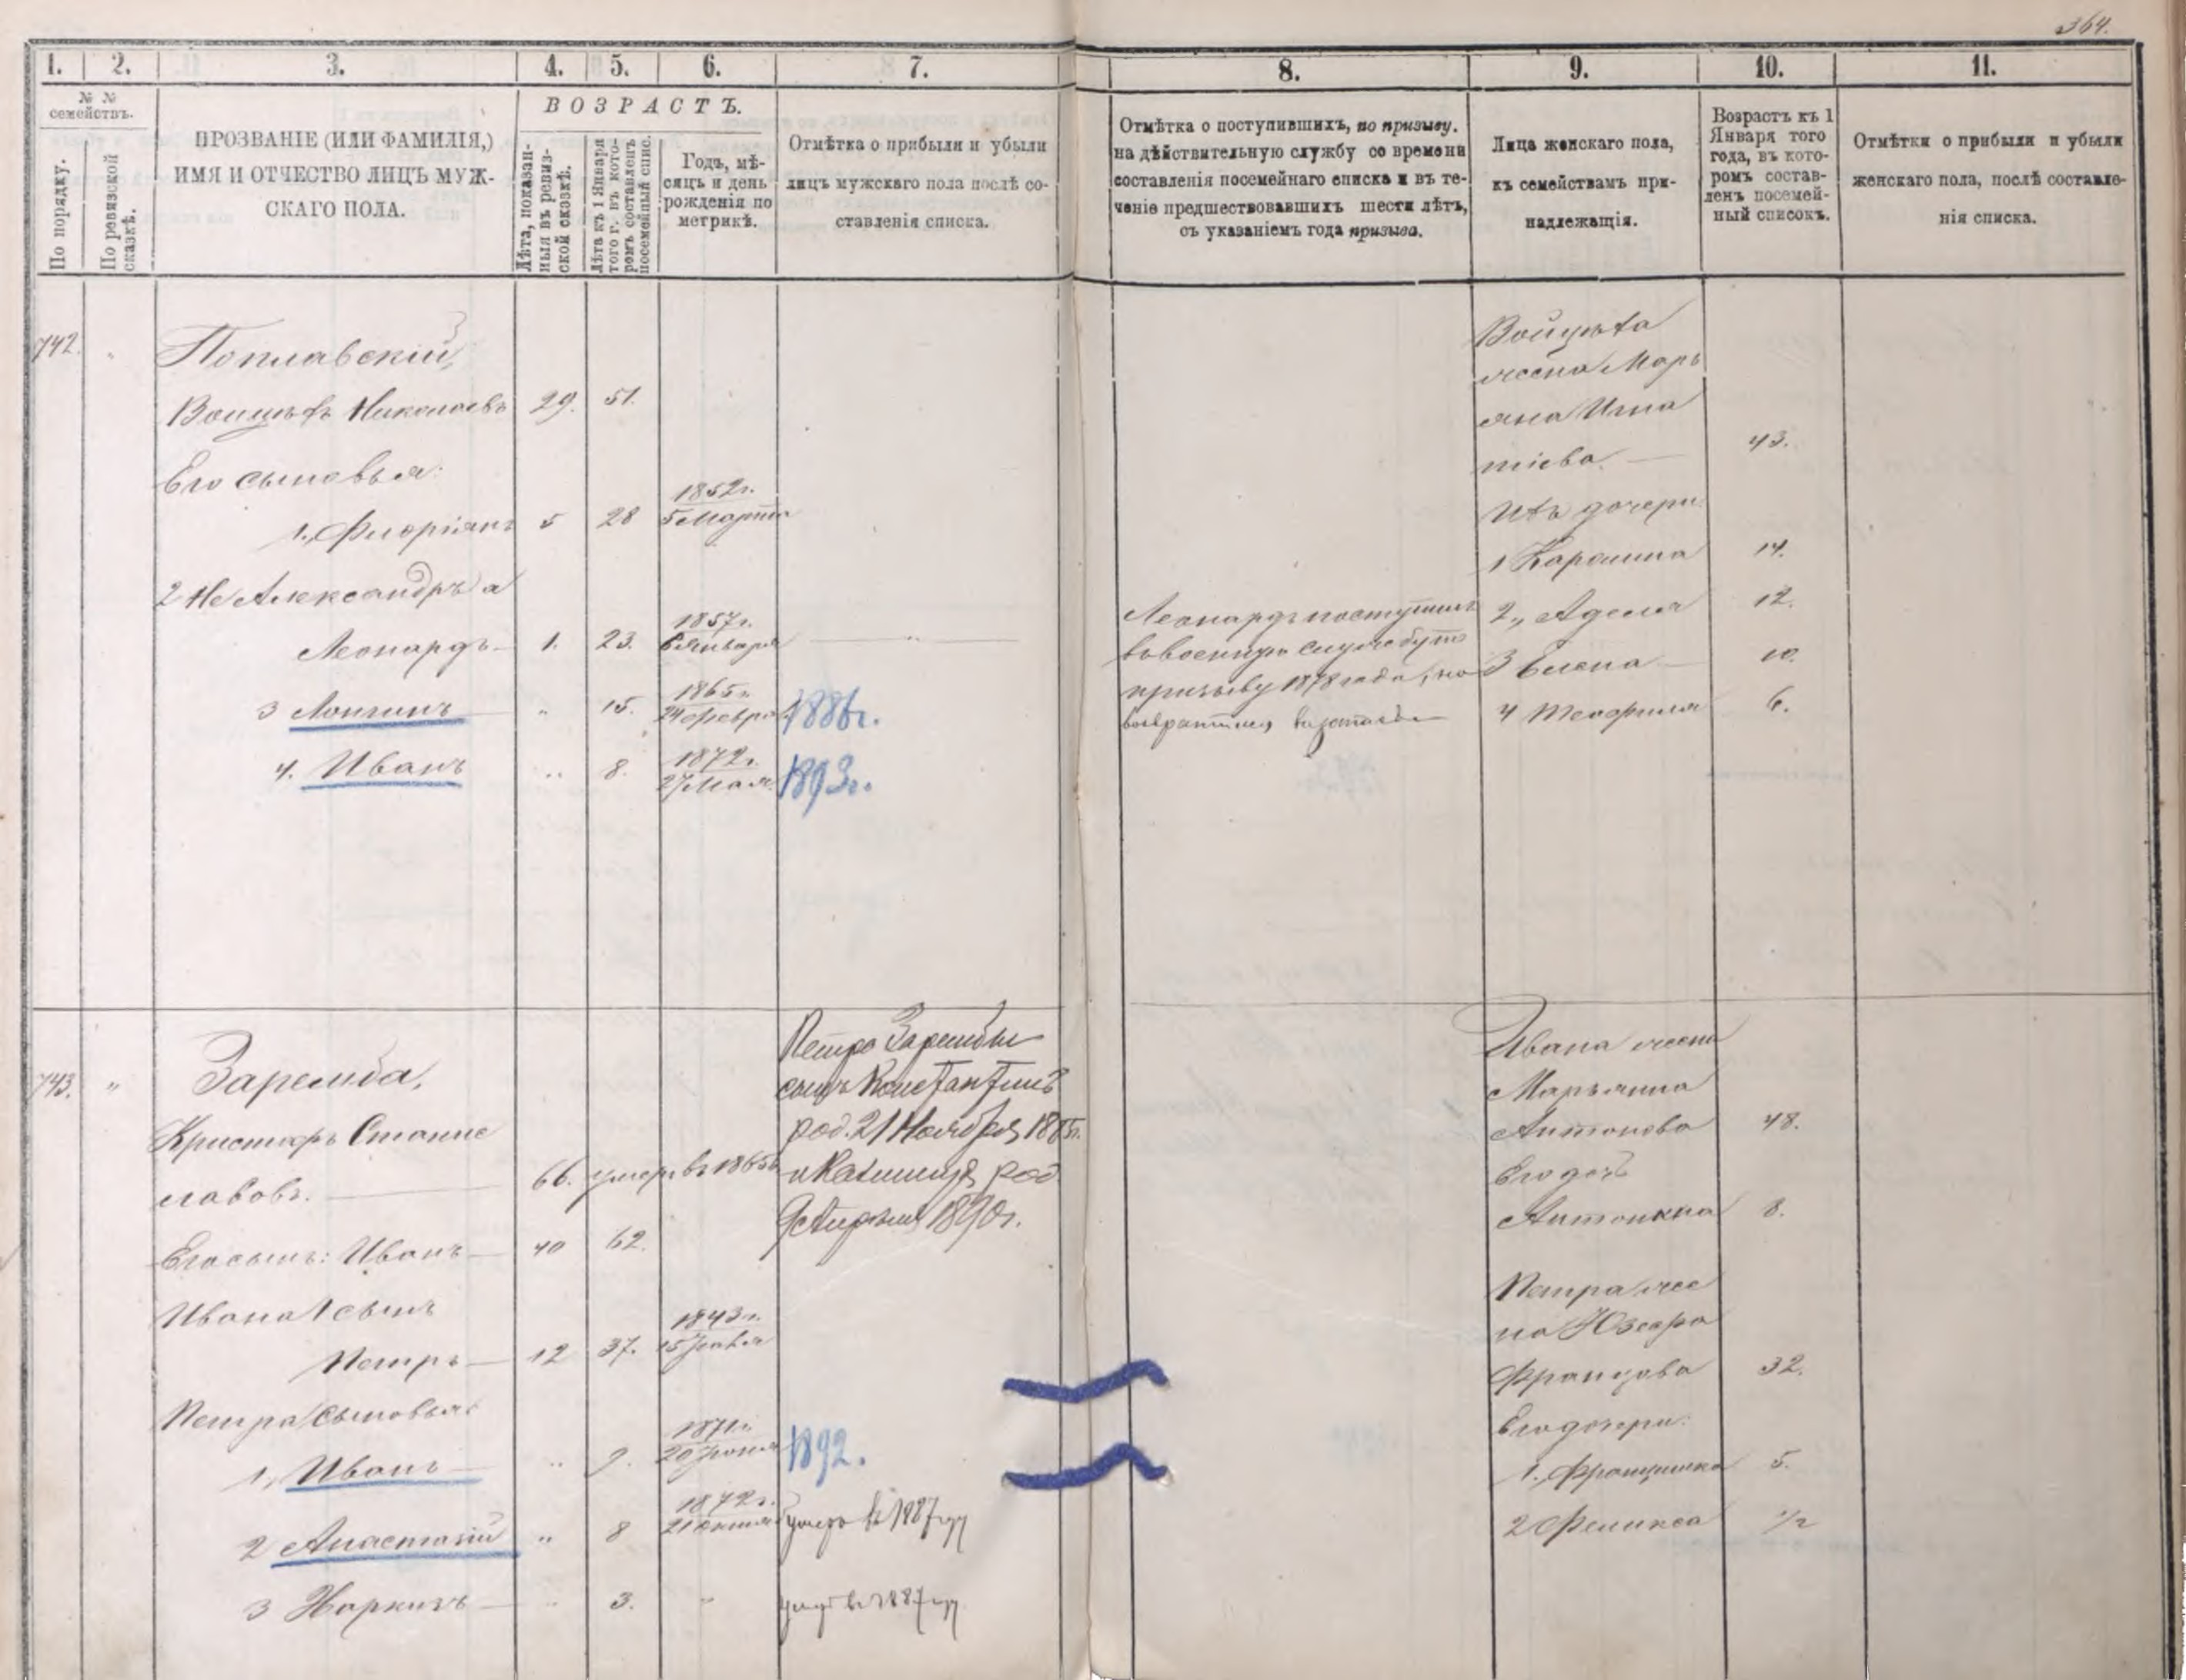 364.
1. 2. 3. 4. 5. 6. 7. 8. 9. 10. 11.
№ № семействъ.
По порядку.
По ревизской сказкѣ.
ПРОЗВАНІЕ (ИЛИ ФАМИЛІЯ,)
ИМЯ И ОТЧЕСТВО ЛИЦЪ МУЖ-
СКАГО ПОЛА.
ВОЗРАСТЪ.
Лѣта, показан-
ныя въ ревиз-
ской сказкѣ.
Лѣта къ 1 Января
того г. въ кото-
ромъ составленъ
посемейный спис.
Годъ, мѣ-
сяцъ и день
рожденія по
метрикѣ.
Отмѣтка о прибыли и убыли
лицъ мужскаго пола послѣ со-
ставленія списка.
Отмѣтка о поступившихъ, по призыву.
на дѣйствительную службу со времени
составленія посемейнаго списка и въ те-
ченіе предшествовавшихъ шести лѣтъ,
съ указаніемъ года призыва.
Лица женскаго пола,
къ семействамъ при-
надлежащія.
Возрастъ къ 1
Января того
года, въ кото-
ромъ состав-
ленъ посемей-
ный списокъ.
Отмѣтки о прибыли и убыли
женскаго пола, послѣ составле-
нія списка.
742. "
Поплавскій,
Войцѣхъ Николаевъ 29. 51.
Его сыновья:
1., Флоріянъ 5 28 1852г. 5 Марта
2 Не Александръ а
Леонардъ 1. 23. 1857г. 6 Января "
3 Лонгинъ " 15. 1865г. 24 Февра. 1886г.
4. Иванъ " 8. 1872г. 27 Мая. 1893г.
Леонардъ поступилъ
въ военную службу по
призыву 1878 года, но
возвратился
Войцѣха
жена Марь
яна Игна
тіева. 43.
Ихъ дочери
1 Каролина 14.
2., Аделя 12.
3 Елена 10.
4 Теофиля 6.
743. "
Заремба,
Кристофъ Станис
лавовъ. 66. умеръ въ 1865г.
Его сынъ: Иванъ 40 62.
Ивана 1 сынъ
Петръ 12 37. 1843г. 15 Іюля
Петра сыновья:
1., Иванъ " 9. 1871г. 20 Іюня 1892.
2 Анастазій " 8 1872г. умеръ въ 1887 году
3 Наркизъ " 3. " умеръ въ 1887 году
Петра Зарембы
сынъ Константинъ
род. 21 Ноября 1885г.
и Казимиръ род.
9 Апрѣля 1890г.
Ивана жена
Марьянна
Антонова 48.
Его дочь
Антонина 8.
Петра же
на Юзефа
Францова 32.
Его дочери:
1., Францишка 5.
2 Феликса 1/2